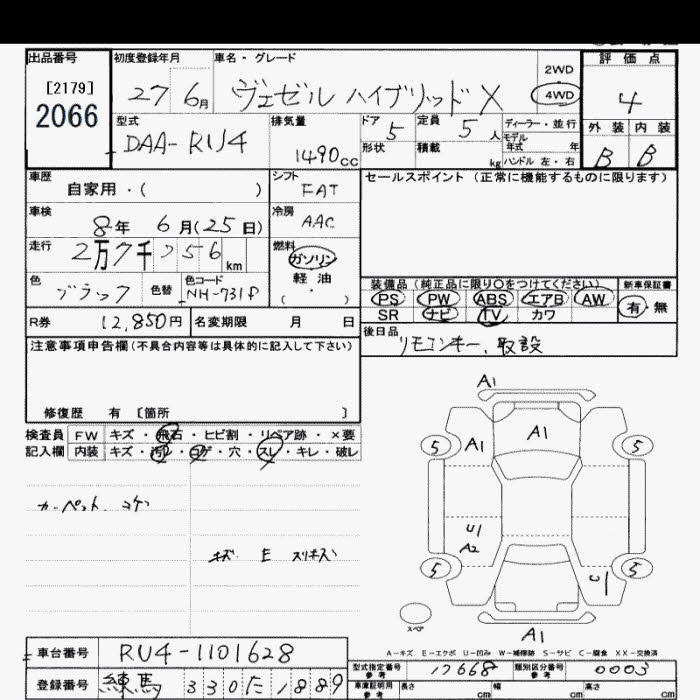 出品番号 初度登録年月 車名・グレード 評価点
[2179] 2066
27 6月 ヴェゼル ハイブリッド X 2WD 4WD 4
型式 DAA-RU4 排気量 1490cc ドア 5 定員 5人 ディーラー・並行
形状 積載 kg モデル年式 年 ハンドル 左・右
外装 内装
B B
車歴 自家用・( ) シフト FAT セールスポイント(正常に機能するものに限ります)
車検 8年 6月(25日) 冷房 AAC
走行 2万7千 256 km 燃料 ガソリン 軽油 ( ・ )
色 ブラック 色替 色コード NH-731P
装備品(純正品に限り○をつけてください) 新車保証書
PS PW ABS エアB AW 有・無
SR ナビ TV カワ
R券 12,850円 名変期限 月 日
後日品 リモコンキー、取説
注意事項申告欄(不具合内容等は具体的に記入して下さい)
修復歴 有 [箇所 ]
検査員 FW キズ・飛石・ヒビ割・リペア跡・×要
記入欄 内装 キズ・汚レ・コゲ・穴・スレ・キレ・破レ
カーペット コゲ
キズ E スリキズ
A1
5 A1 A1 5
U1
A2
5 U1 5
スペア
A1
A-キズ E-エクボ U-凹み W-補修跡 S-サビ C-腐食 XX-交換済
車台番号 RU4-1101628
型式指定番号 参考 17668 類別区分番号 参考 0003
登録番号 練馬 330 1889
車庫証明用 参考 長さ cm 幅 cm 高さ cm